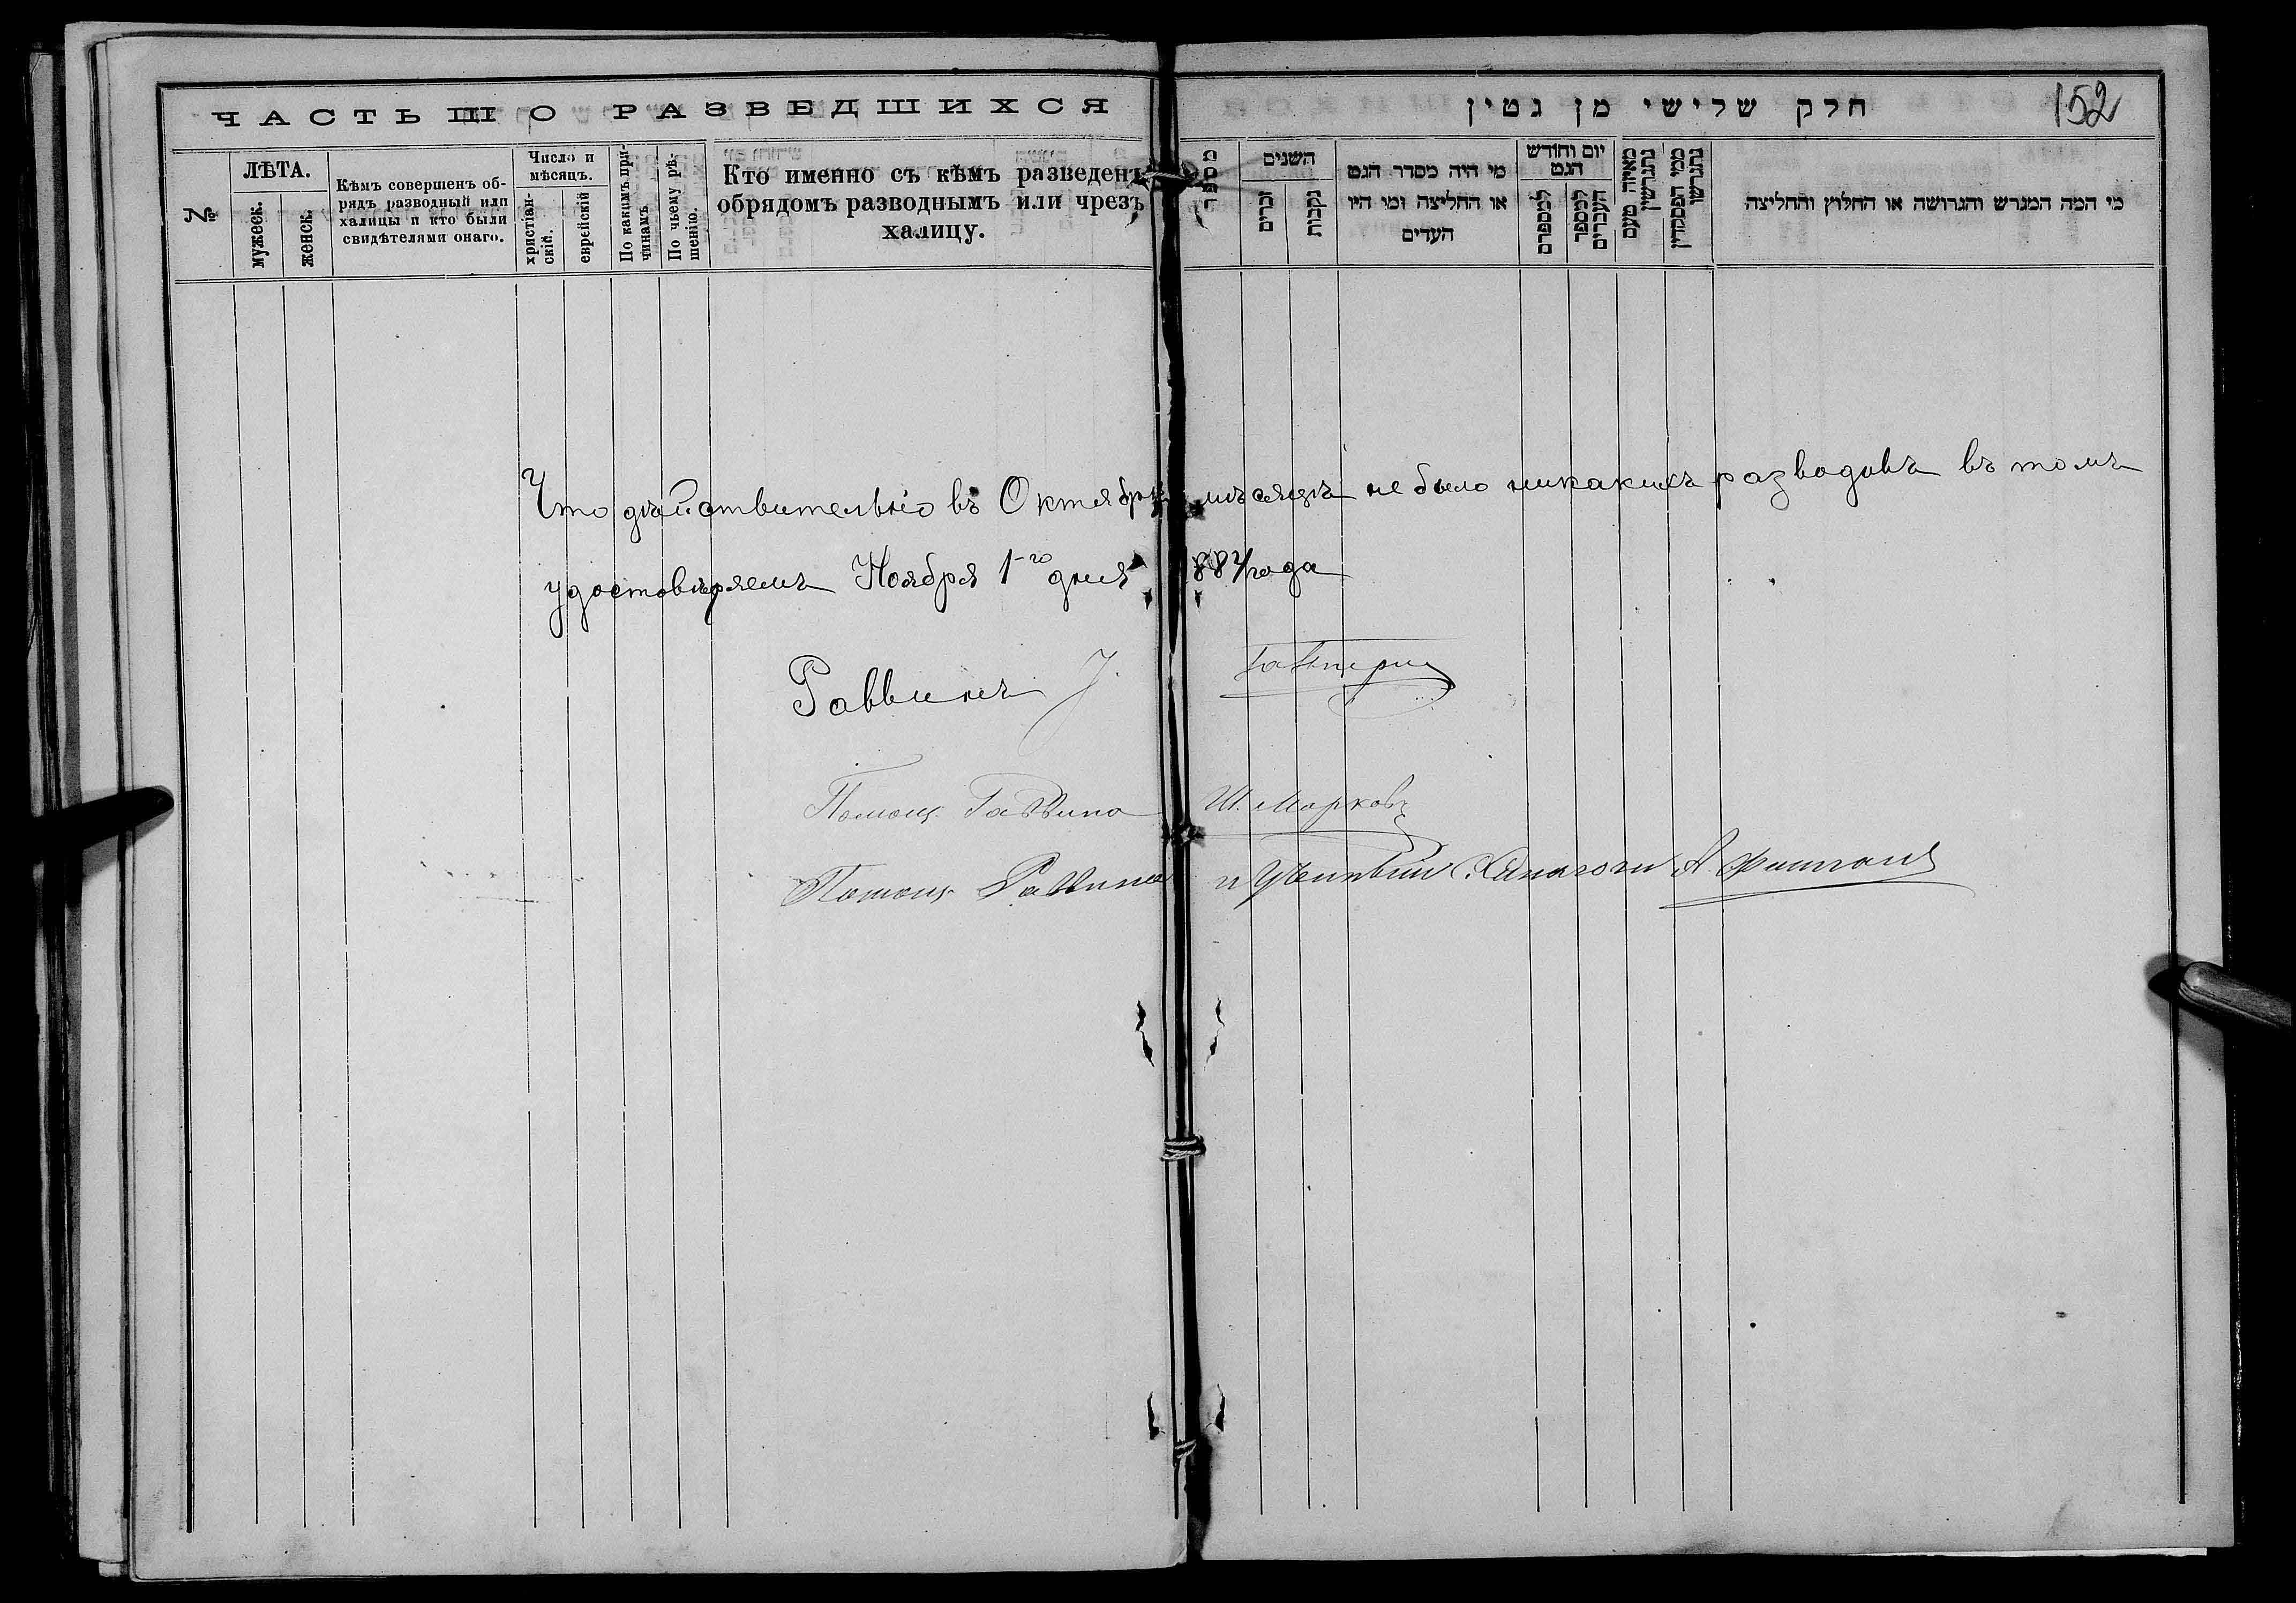 ЧАСТЬ III О РАЗВЕДШИХСЯ
№
ЛѢТА.
мужеск.
женск.
Кѣмъ совершенъ об-
рядъ разводный или
халицы и кто были
свидѣтелями онаго.
Число и
мѣсяцъ.
христіан-
скій.
еврейскій
По какимъ при-
чинамъ
По чьему рѣ-
шенію.
Кто именно съ кѣмъ разведенъ
обрядомъ разводнымъ или чрезъ
халицу.
חלק שלישי מן גטין
152
מספר
השנים
זכרים
נקבות
מי היה מסדר הגט
או החליצה ומי היו
העדים
יום וחודש
הגט
למספרם
למספר
העברים
מאיזה טעם
נתגרשין
ממי הפסדין
נתגרשו
מי המה המגרש והגרושה או החלוץ והחליצה
Что дѣйствительно въ Октябрѣ мѣсяцѣ не было никакихъ разводовъ въ томъ
удостовѣряемъ Ноября 1-го дня 1884 года
Раввинъ
Помощ. Раввина Ш. Марковъ
Помощ. Раввина и Синагоги А.